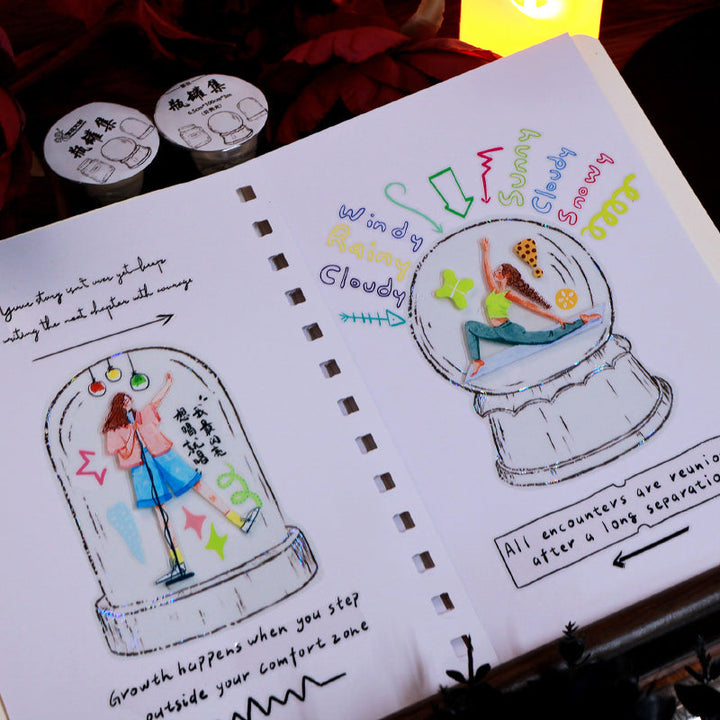 瓶罐集
瓶罐集
6.5cm*100cm*2m
Your story isn't over yet keep
writing the next chapter with courage
我最闪亮
想唱就唱
Growth happens when you step
outside your comfort zone
Windy
Rainy
Cloudy
Sunny
Cloudy
Snowy
All encounters are reunio
after a long separation